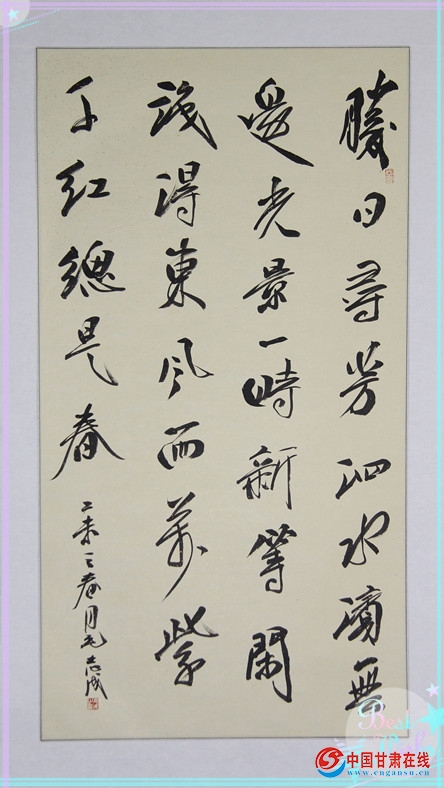 勝日尋芳泗水濱無
邊光景一時新等閑
識得東風面萬紫
千紅總是春
乙未之春月毛志成
Best
中国甘肃在线
www.cngansu.cn